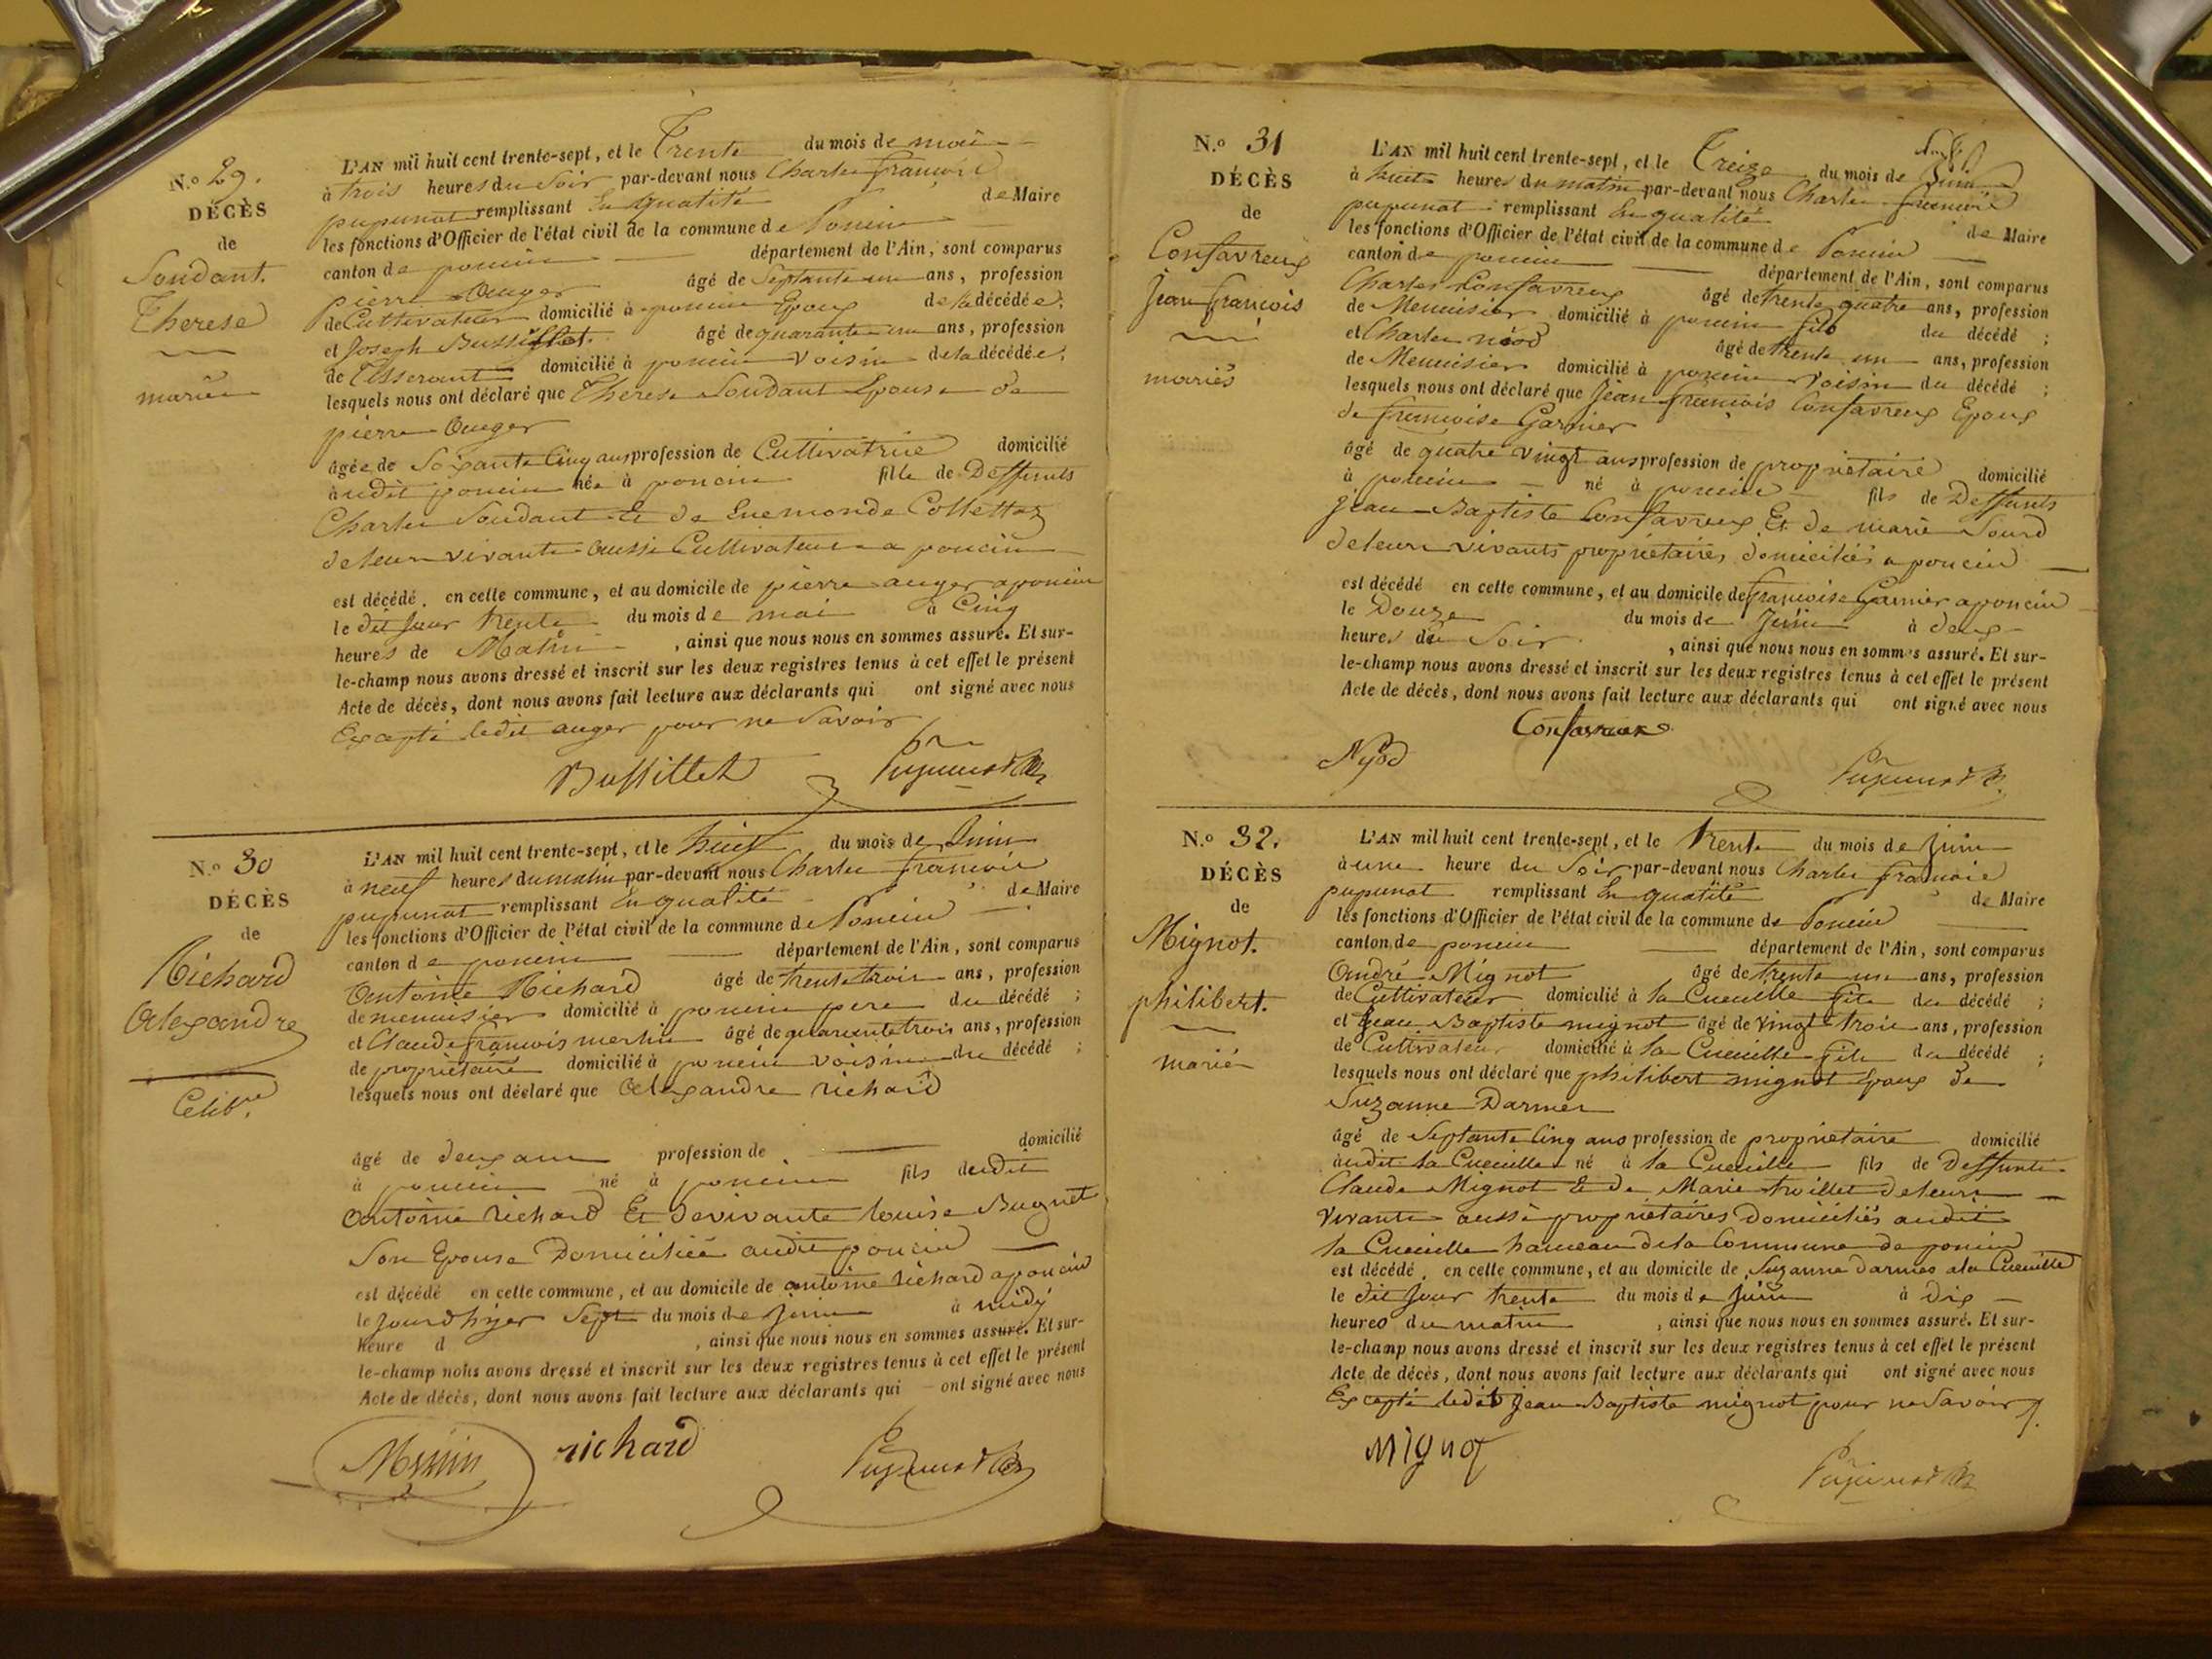 N.o 29.
DÉCÈS
de
Soudant.
Therese
mariée
L'AN mil huit cent trente-sept, et le Trente du mois de mai
à trois heures du Soir par-devant nous Charles françois
pupunat remplissant En qualité de Maire
les fonctions d'Officier de l'état civil de la commune de Poncin
canton de poncin département de l'Ain, sont comparus
pierre Auger âgé de Septante un ans, profession
de Cultivateur domicilié à poncin Epoux de la décédée;
et Joseph Bussillet âgé de quarante un ans, profession
de Tisserant domicilié à poncin voisin de la décédée;
lesquels nous ont déclaré que Therese Soudant Epouse de
pierre Auger
âgée de Soixante Cinq ans profession de Cultivatrice domicilié
audit poncin née à poncin fille de Deffunts
Charles Soudant Et de Enemonde Collettaz
de leur vivante aussi Cultivateurs a poncin
est décédé. en cette commune, et au domicile de pierre auger a poncin
le dit Jour trente du mois de mai à Cinq
heures de Matin, ainsi que nous nous en sommes assuré. Et sur-
le-champ nous avons dressé et inscrit sur les deux registres tenus à cet effet le présent
Acte de décès, dont nous avons fait lecture aux déclarants qui ont signé avec nous
Excepté ledit auger pour ne Savoir
Bussillet Pupunat
N.o 30
DÉCÈS
de
Richard
Alexandre
Célibre
L'AN mil huit cent trente-sept, et le huit du mois de Juin
à neuf heures du matin par-devant nous Charles françois
pupunat remplissant En qualité de Maire
les fonctions d'Officier de l'état civil de la commune de Poncin
canton de poncin département de l'Ain, sont comparus
Antoine Richard âgé de trente trois ans, profession
de menuisier domicilié à poncin pere du décédé;
et Claude françois merlin âgé de quarante trois ans, profession
de propriétaire domicilié à poncin voisin du décédé;
lesquels nous ont déclaré que Alexandre richard
âgé de deux ans profession de domicilié
à poncin né à poncin fils dudit
Antoine richard Et de vivante louise Bugnet
Son Epouse Domiciliée audit poncin
est décédé en cette commune, et au domicile de antoine richard a poncin
le Jour d'hyer Sept du mois de juin à midy
heure d, ainsi que nous nous en sommes assuré. Et sur-
le-champ nous avons dressé et inscrit sur les deux registres tenus à cet effet le présent
Acte de décès, dont nous avons fait lecture aux déclarants qui ont signé avec nous
richard Pupunat
N.o 31
DÉCÈS
de
Confavreux
Jean françois
mariés
L'AN mil huit cent trente-sept, et le Treize du mois de Juin
à huit heures du matin par-devant nous Charles françois
pupunat remplissant En qualité de Maire
les fonctions d'Officier de l'état civil de la commune de Poncin
canton de poncin département de l'Ain, sont comparus
Charles Confavreux âgé de trente quatre ans, profession
de Menuisier domicilié à poncin fils du décédé;
et Charles niód âgé de trente un ans, profession
de Menuisier domicilié à poncin voisin du décédé;
lesquels nous ont déclaré que Jean françois Confavreux Epoux
de françoise Garnier
âgé de quatre vingt ans profession de propriétaire domicilié
à poncin né à poncin fils de Deffunts
Jean Baptiste Confavreux Et de marie Sourd
de leur vivants propriétaires domiciliés a poncin
est décédé en cette commune, et au domicile de françoise Garnier a poncin
le Douze du mois de Juin à deux
heures du Soir, ainsi que nous nous en sommes assuré. Et sur-
le-champ nous avons dressé et inscrit sur les deux registres tenus à cet effet le présent
Acte de décès, dont nous avons fait lecture aux déclarants qui ont signé avec nous
Confavreux
Nyod Pupunat
N.o 32.
DÉCÈS
de
Mignot.
philibert.
marié
L'AN mil huit cent trente-sept, et le trente du mois de Juin
à une heure du Soir par-devant nous Charles françois
pupunat remplissant En qualité de Maire
les fonctions d'Officier de l'état civil de la commune de Poncin
canton de poncin département de l'Ain, sont comparus
André Mignot âgé de trente un ans, profession
de Cultivateur domicilié à la Cueuille fils du décédé;
et Jean Baptiste mignot âgé de vingt trois ans, profession
de Cultivateur domicilié à la Cueuille fils du décédé;
lesquels nous ont déclaré que philibert mignot Epoux de
Suzanne Darmes
âgé de Septante Cinq ans profession de propriétaire domicilié
audit la Cueuille né à la Cueuille fils de Deffunts
Claude Mignot Et de Marie troillet de leurs
vivants aussi propriétaires Domiciliés audit
la Cueuille hameau de la Commune de poncin
est décédé. en cette commune, et au domicile de Suzanne darmes a la Cueuille
le dit Jour trente du mois de Juin à dix
heures du matin, ainsi que nous nous en sommes assuré. Et sur-
le-champ nous avons dressé et inscrit sur les deux registres tenus à cet effet le présent
Acte de décès, dont nous avons fait lecture aux déclarants qui ont signé avec nous
Excepté ledit Jean Baptiste mignot pour ne Savoir
Mignot Pupunat